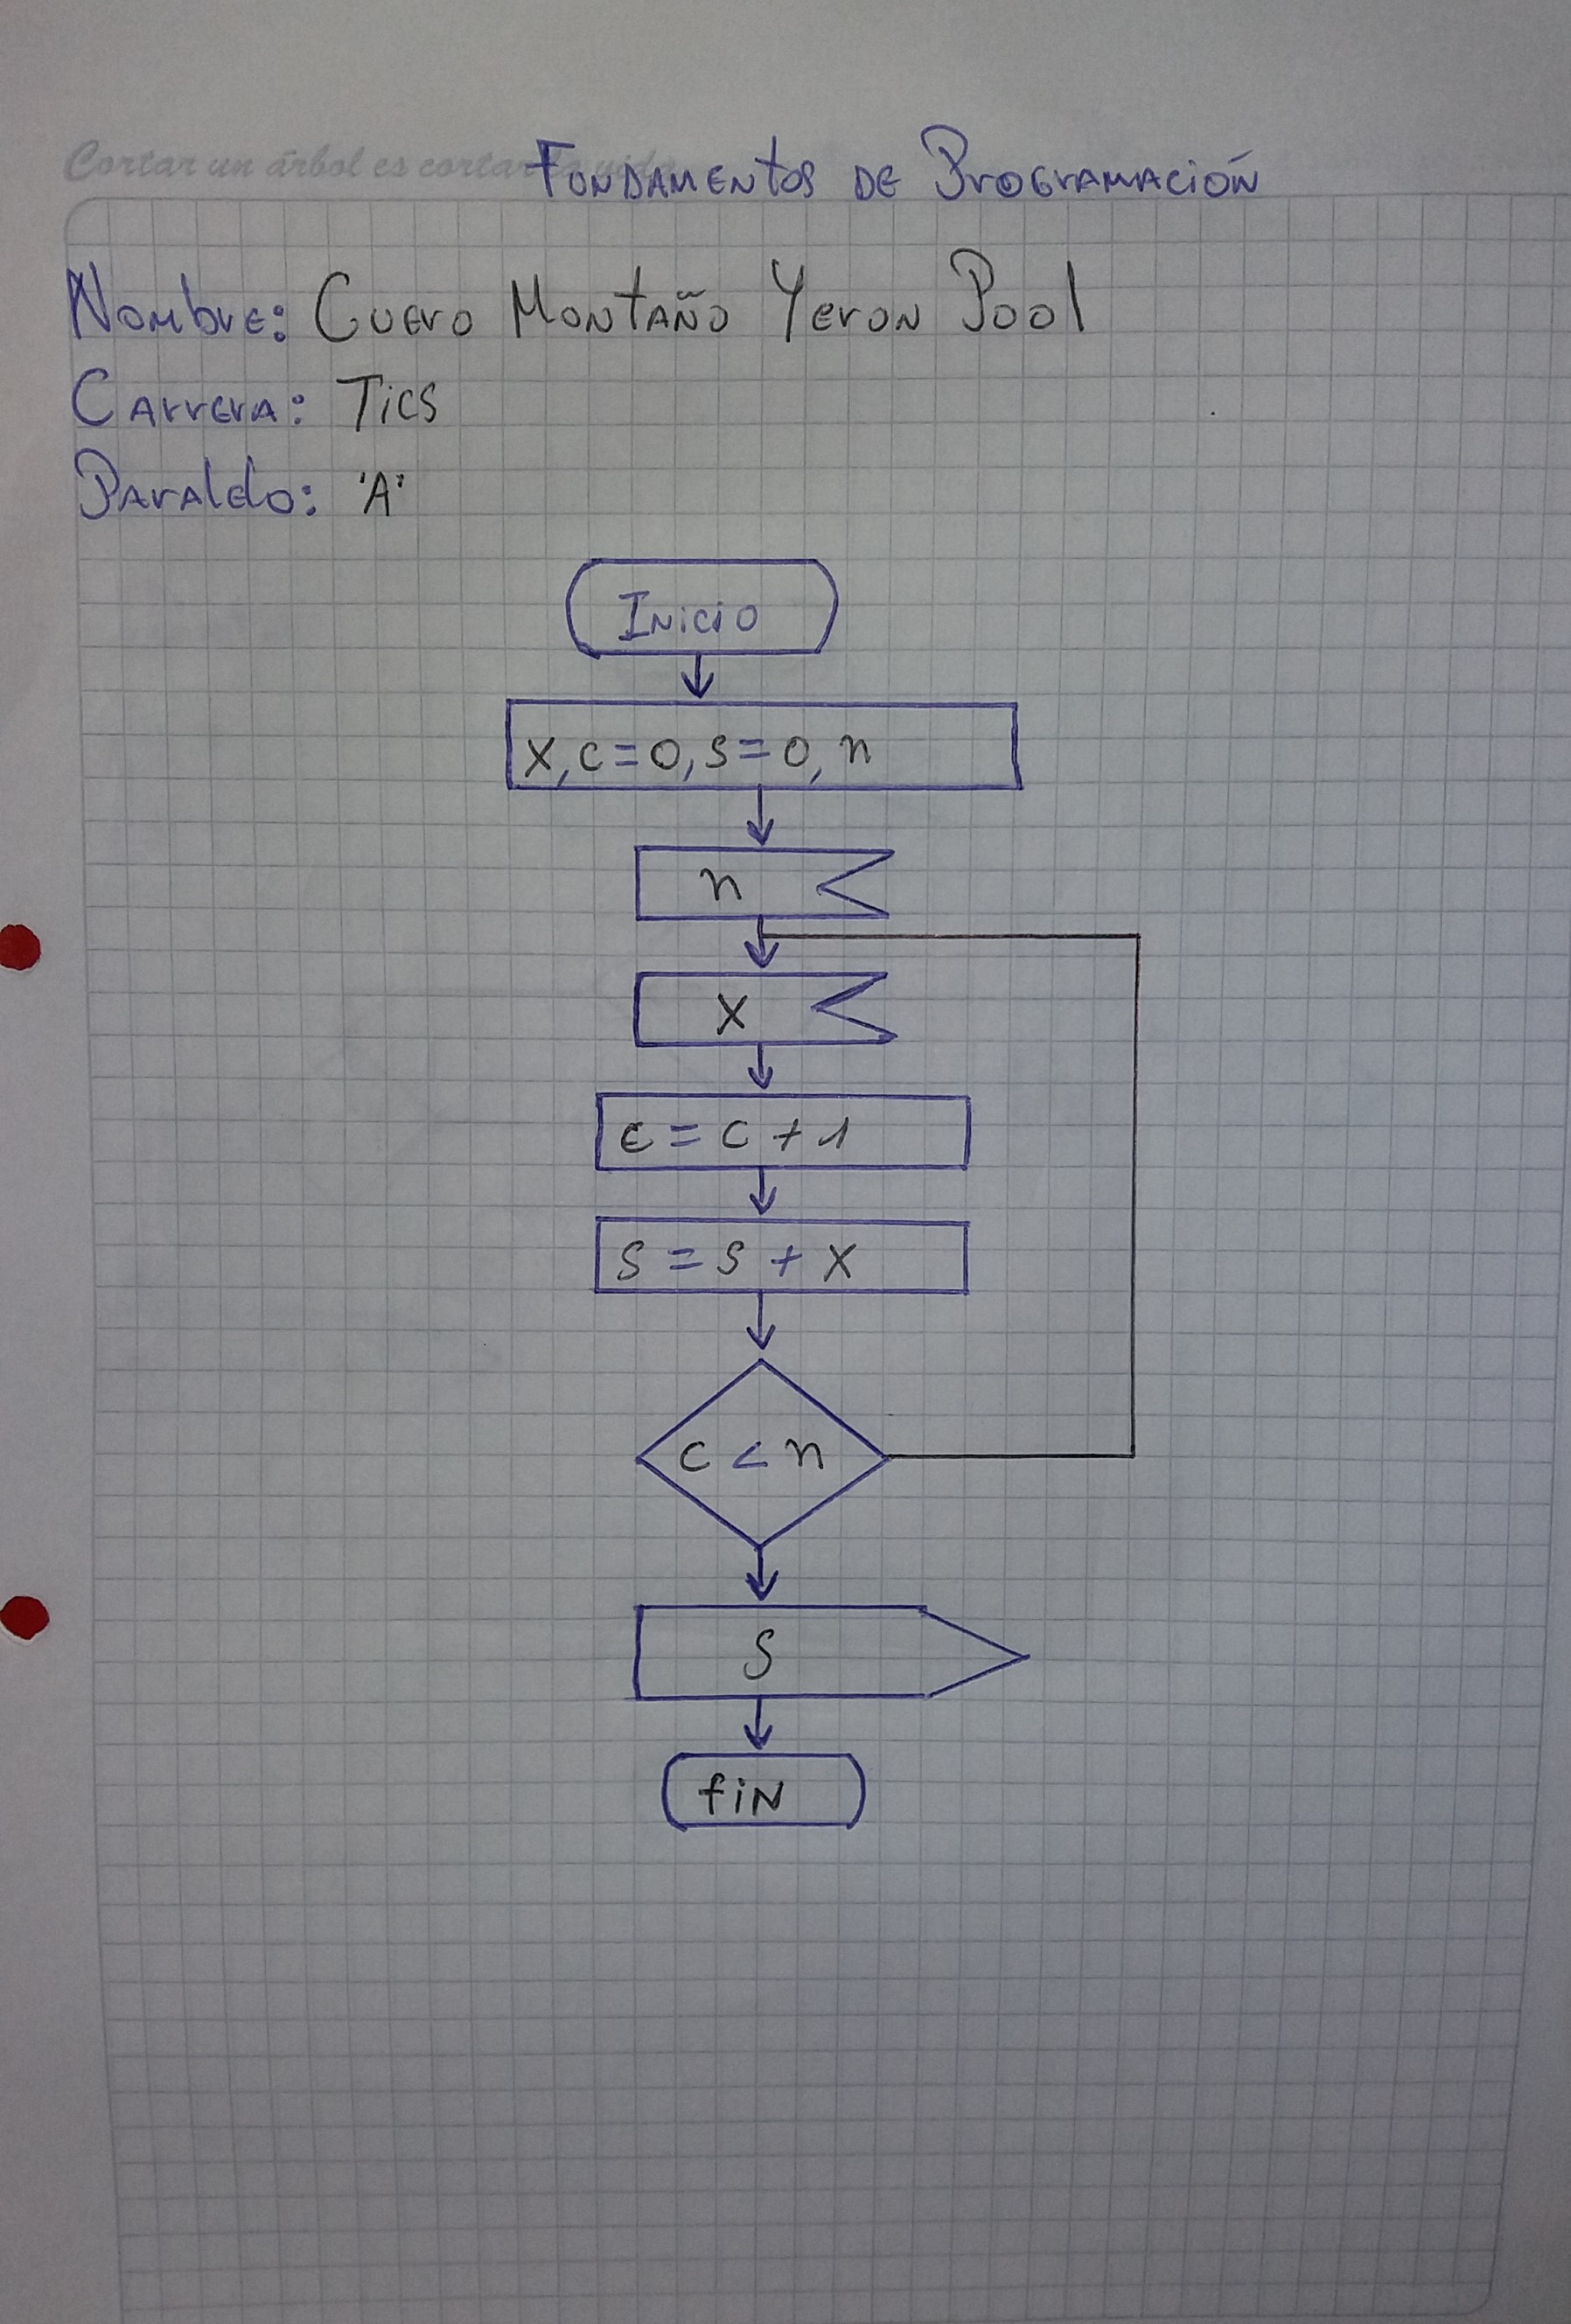 Cortar un árbol es cortar
Fundamentos de Programación
Nombre: Cuero Montaño Yeron Pool
Carrera: Tics
Paraldo: 'A'
Inicio
x, c=0, s=0, n
n
x
c = c + 1
s = s + x
c < n
S
fin